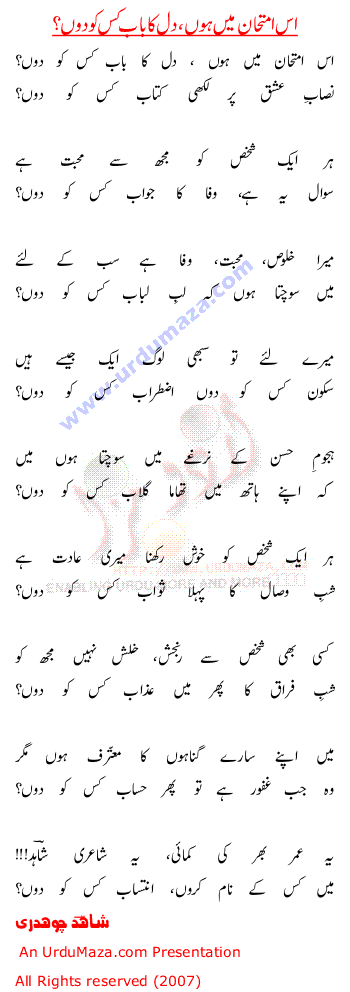 اس امتحان میں ہوں، دل کا باب کس کو دوں؟
اس امتحان میں ہوں ، دل کا باب کس کو دوں؟
نصابِ عشق پر لکھی کتاب کس کو دوں؟
ہر ایک شخص کو مجھ سے محبت ہے
سوال یہ ہے، وفا کا جواب کس کو دوں؟
میرا خلوص، محبت، وفا ہے سب کے لئے
میں سوچتا ہوں کہ لبِ لباب کس کو دوں؟
میرے لئے تو سبھی لوگ ایک جیسے ہیں
سکون کس کو دوں اضطراب کس کو دوں؟
ہجومِ حسن کے نرغے میں سوچتا ہوں میں
کہ اپنے ہاتھ میں تھاما گلاب کس کو دوں؟
ہر ایک شخص کو خوش رکھنا میری عادت ہے
شبِ وصال کا پہلا ثواب کس کو دوں؟
کسی بھی شخص سے رنجش، خلش نہیں مجھ کو
شبِ فراق کا پھر میں عذاب کس کو دوں؟
میں اپنے سارے گناہوں کا معترف ہوں مگر
وہ جب غفور ہے تو پھر حساب کس کو دوں؟
یہ عمر بھر کی کمائی، یہ شاعری شاہدؔ!!!
میں کس کے نام کروں، انتساب کس کو دوں؟
شاھد چوھدری
An UrduMaza.com Presentation
All Rights reserved (2007)
www.urdumaza.com
HTTP://WWW.URDUMAZA.COM
ENABLING URDU MORE AND MORE